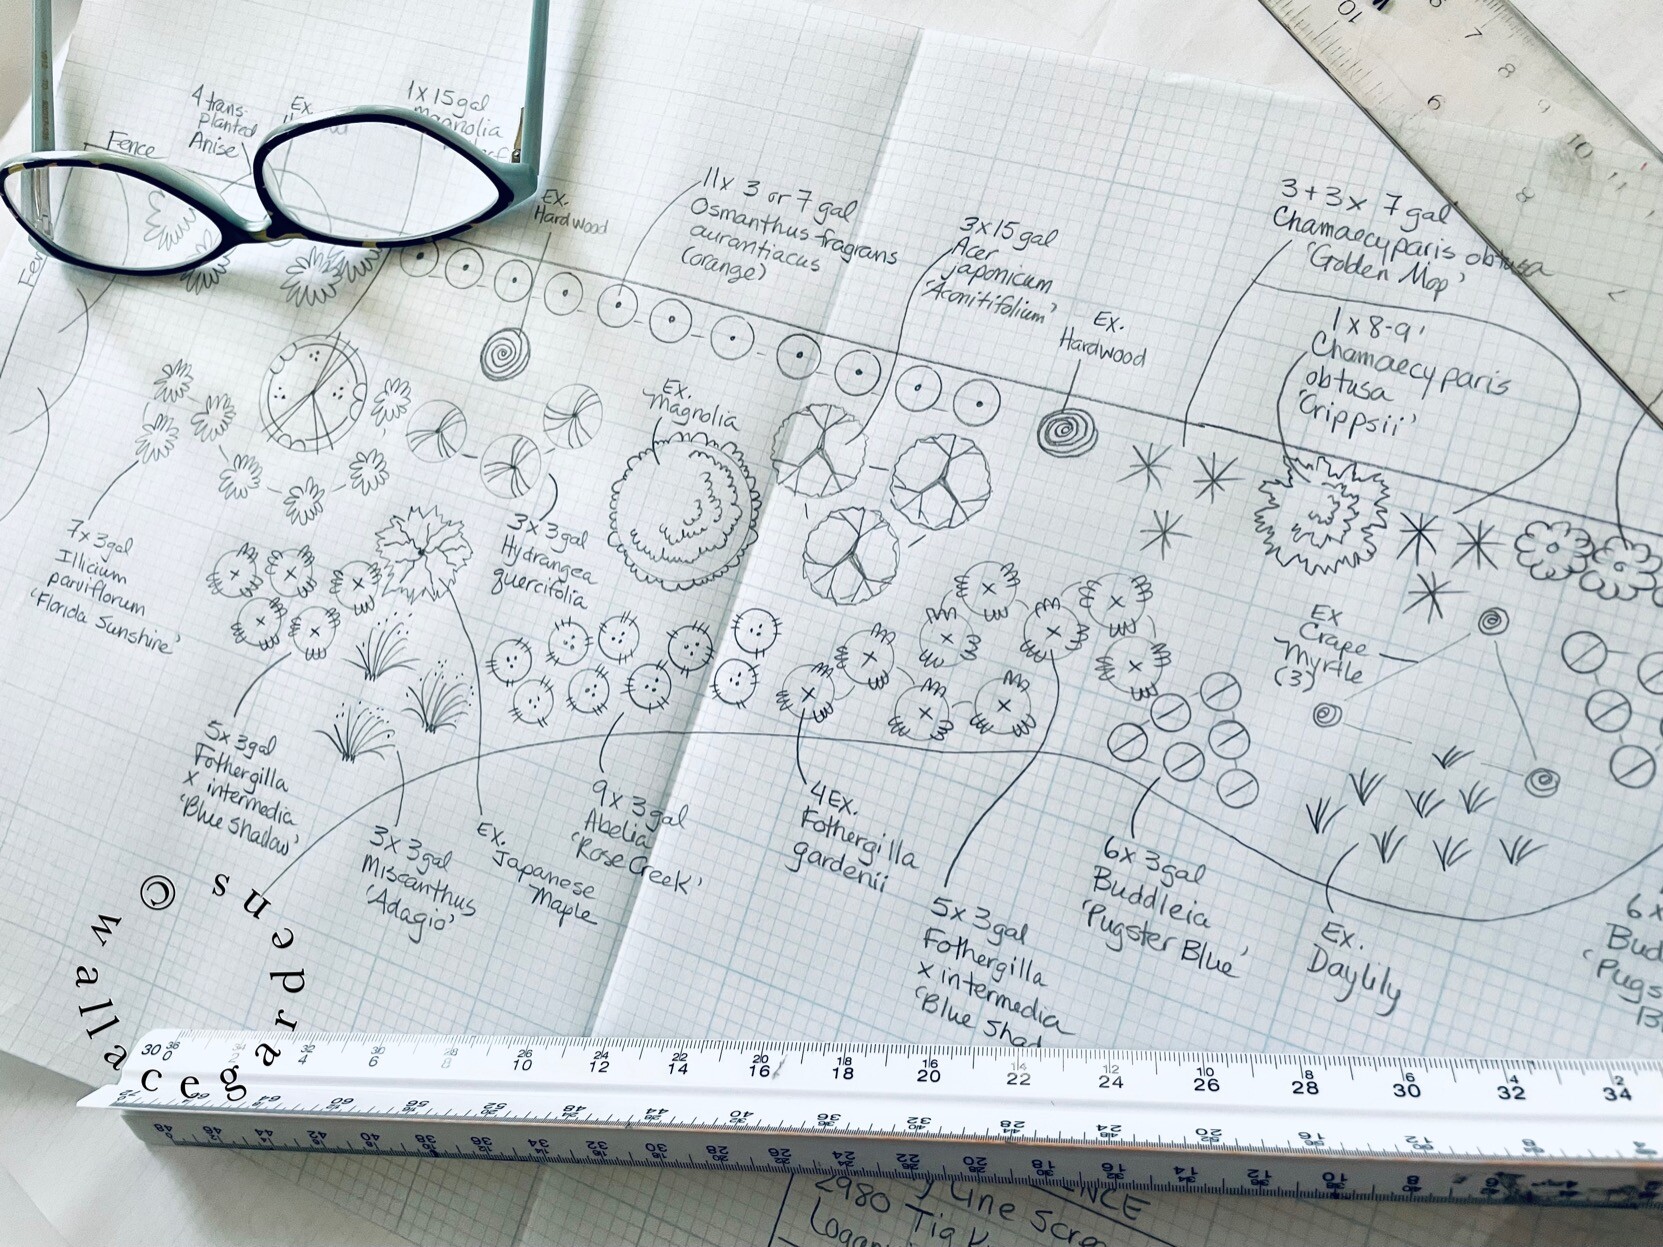 4 trans-
planted
Anise
Ex.
1 x 15 gal
magnolia
Fence
Ex.
Hardwood
11x 3 or 7 gal
Osmanthus fragrans
aurantiacus
(orange)
3x15 gal
Acer
japonicum
'Aconitifolium'
Ex.
Hardwood
3+3x 7 gal
Chamaecyparis obtusa
'Golden Mop'
1 x 8-9'
Chamaecyparis
obtusa
'Crippsii'
Ex.
magnolia
7x3gal
Illicium
parviflorum
'Florida Sunshine'
3x3gal
Hydrangea
quercifolia
Ex
Crape
Myrtle
(3)
5x3gal
Fothergilla
x intermedia
'Blue Shadow'
3x3gal
Miscanthus
'Adagio'
Ex.
Japanese
Maple
9x3gal
Abelia
'Rose Creek'
4 Ex.
Fothergilla
gardenii
5x3gal
Fothergilla
x intermedia
'Blue Shad
6x3gal
Buddleia
'Pugster Blue'
Ex.
Daylily
6x
Bud
'Pugs
© wallace gardens
30 26 24 22 20 18 16 14 12 10 8 6 4 2
0 4 6 8 10 12 14 16 18 20 22 24 26 28 30 32 34
2980
y Line Scre